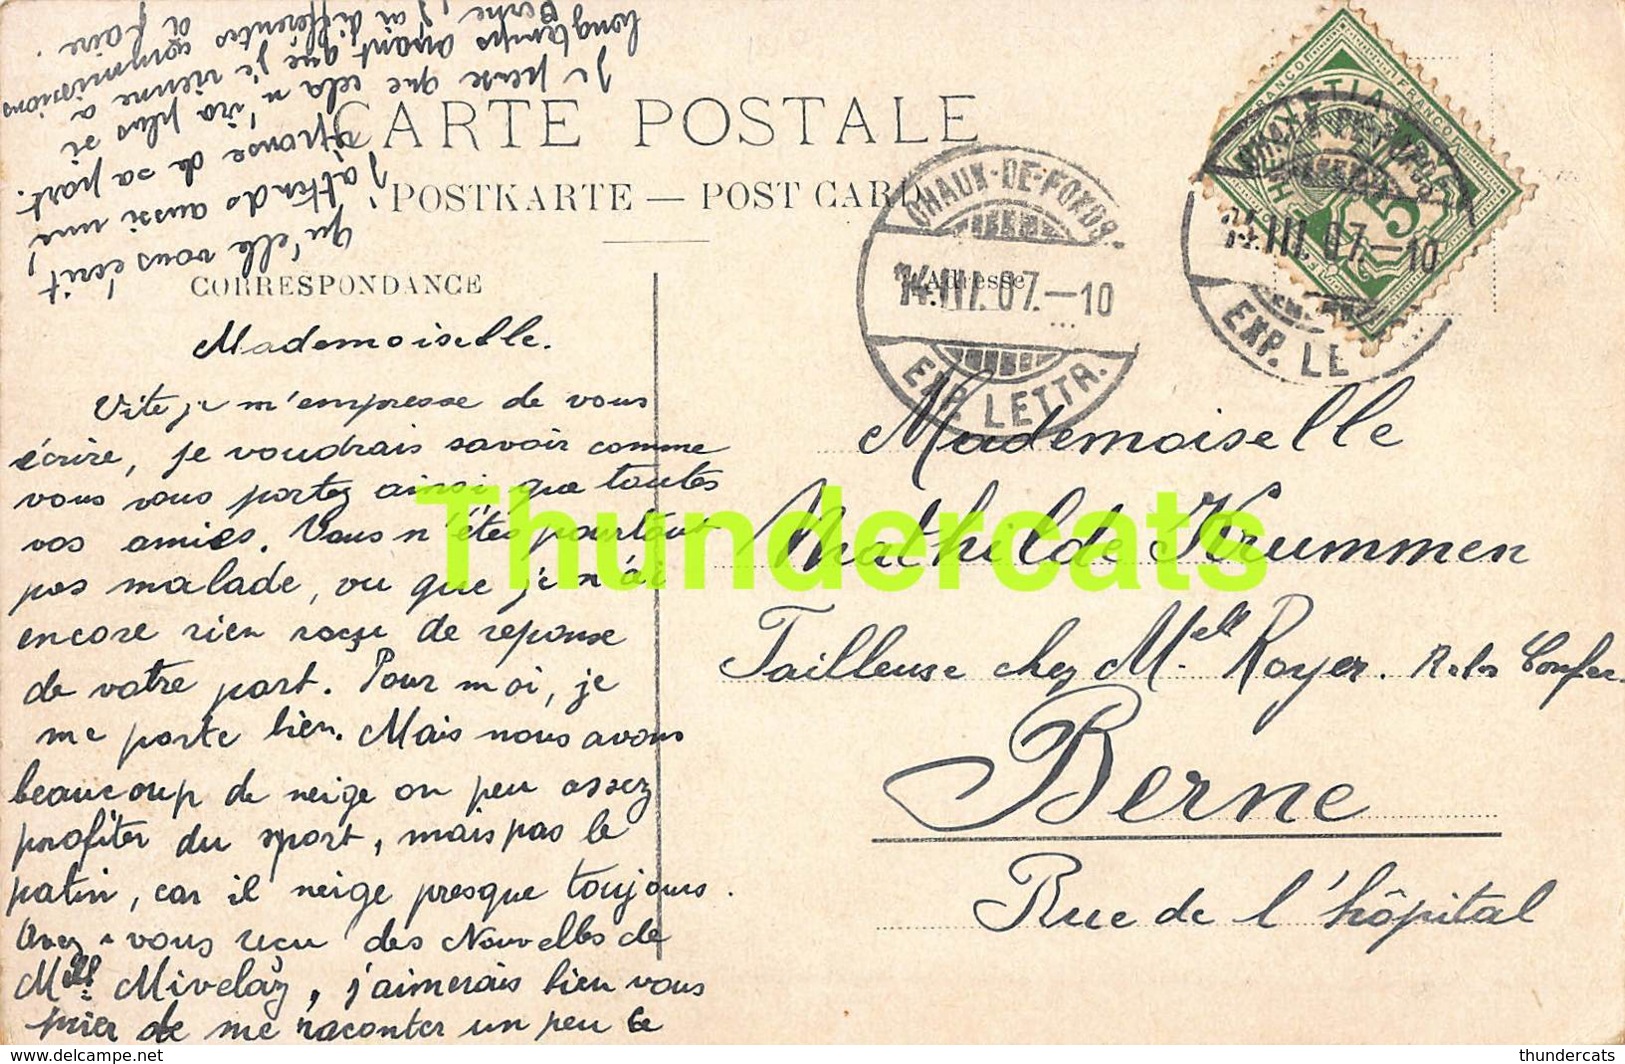 CARTE POSTALE
POSTKARTE — POST CARD
CORRESPONDANCE
Adresse
Mademoiselle.
Vite je m'empresse de vous
écrire, je voudrais savoir comme
vous vous portez ainsi que toutes
vos amies. Vous n'êtes pourtant
pas malade, vu que je n'ai
encore rien reçu de reponse
de votre part. Pour moi, je
me porte bien. Mais nous avons
beaucoup de neige on peu assez
profiter du sport, mais pas le
patin, car il neige presque toujours.
Avez-vous reçu des Nouvelles de
Mell Mivelaz, j'aimerais bien vous
prier de me raconter un peu ce
qu'elle vous écrit,
j'attends aussi une
réponse de sa part.
Je pense que cela n'ira plus si
longtemps avant que je vienne à
Berne, j'ai différentes commissions
à faire.
CHAUX-DE-FONDS
14.III.07.—10
EXP. LETTR.
HELVETIA
FRANCO
FRANCO
5
14.III.07.—10
EXP. LE
Mademoiselle
Mathilde Krummen
Tailleuse chez Melle Royer.
Berne
Rue de l'hôpital
Thundercats
www.delcampe.net
thundercats